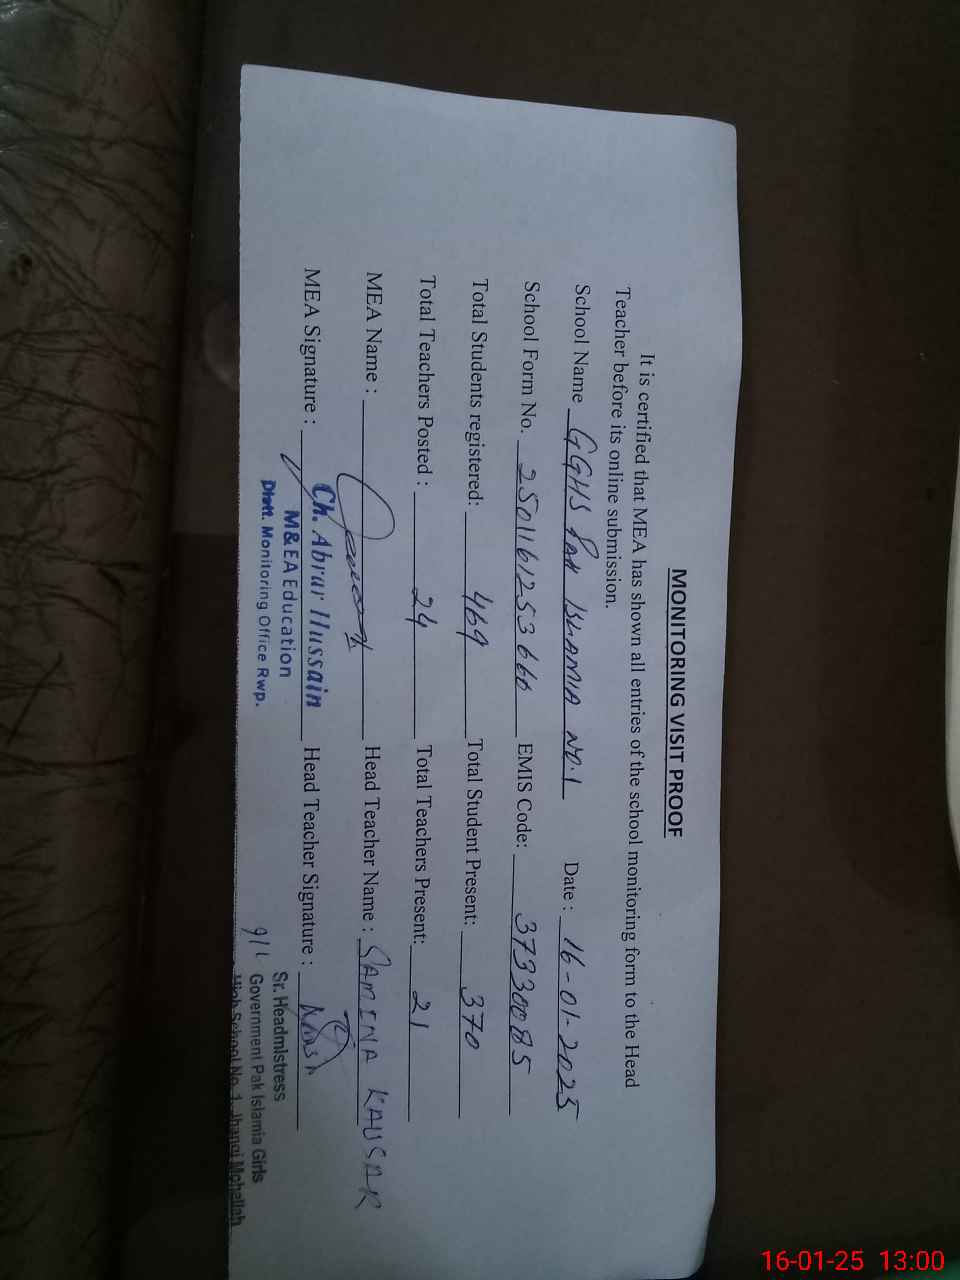 MONITORING VISIT PROOF
It is certified that MEA has shown all entries of the school monitoring form to the Head
Teacher before its online submission.
School Name GGHS PAK ISLAMIA NO.1 Date : 16-01-2025
School Form No. 250116125366 EMIS Code: 37330085
Total Students registered: 469 Total Student Present: 370
Total Teachers Posted : 24 Total Teachers Present: 21
MEA Name : Head Teacher Name : SAMINA KAUSAR
MEA Signature : Head Teacher Signature :
Ch. Abrar Hussain
M&EA Education
Distt. Monitoring Office Rwp.
Sr. Headmistress
Government Pak Islamia Girls
High School No. 1, Jhangi Mohallah
16-01-25 13:00